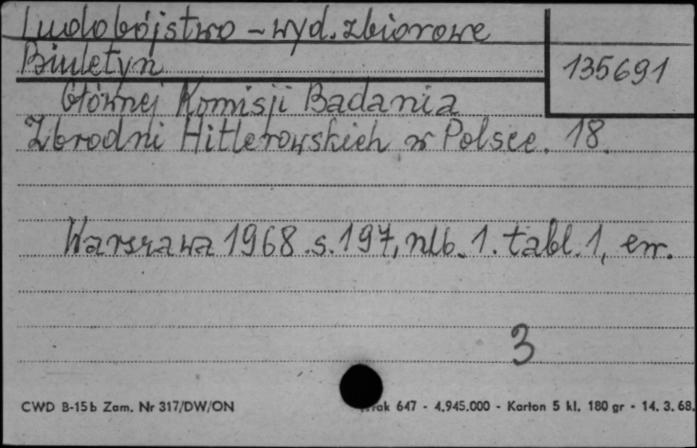 Ludobójstwo - wyd. zbiorowe
Biuletyn
135691
Głównej Komisji Badania
Zbrodni Hitlerowskich w Polsce. 18.
Warszawa 1968 .s. 197, nlb. 1. tabl. 1, err.
3
CWD B-15b Zam. Nr 317/DW/ON
647 - 4.945.000 - Karton 5 kl. 180 gr - 14. 3. 68.